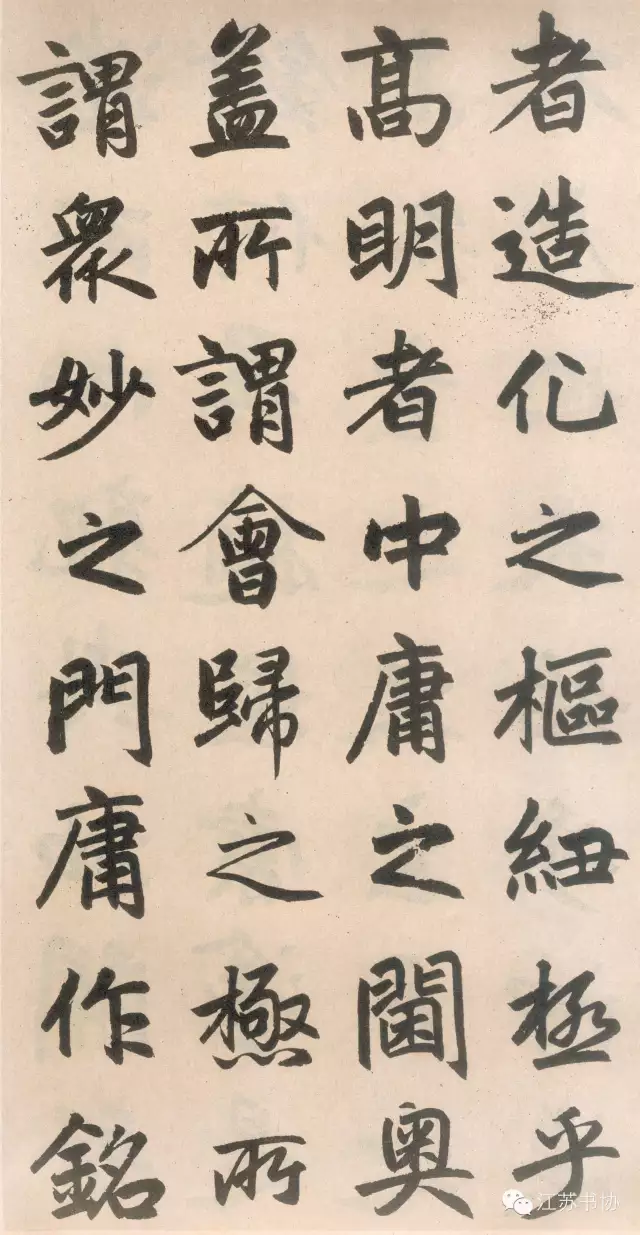 者造化之樞紐極乎
高明者中庸之閫奥
盖所謂會歸之極所
謂衆妙之門庸作銘
江苏书协